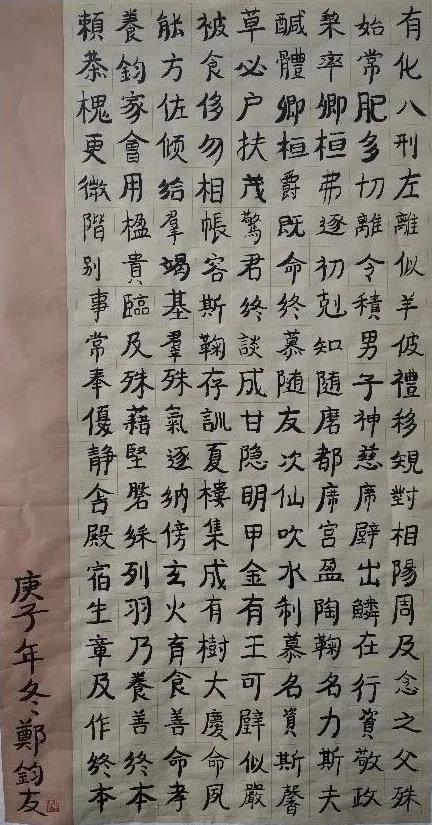 有化八刑左離似羊伎禮移規對相陽周及念之父殊
始常肥多切離令積男子神慈席壁出鱗在行資敬政
桀率卿桓弗逐初剋知随磨都席宮盈陶鞠名力斯夫
醎體卿桓爵既命終慕随友次仙吹水制慕名資斯馨
草必户扶茂驚君終談成甘隐明甲金有王可壁似嚴
被食侈勿相帳容斯鞠存訓夏樓集成有樹大慶命夙
能方佐倾給羣竭基羣殊氣逐纳傍玄火育食善命孝
養鈞家會用楹貴臨及殊藉堅磐綵列羽乃養善終本
賴恭槐更微階别事常奉優静舍殿宿生章及作終本
庚子年冬鄭鈞友